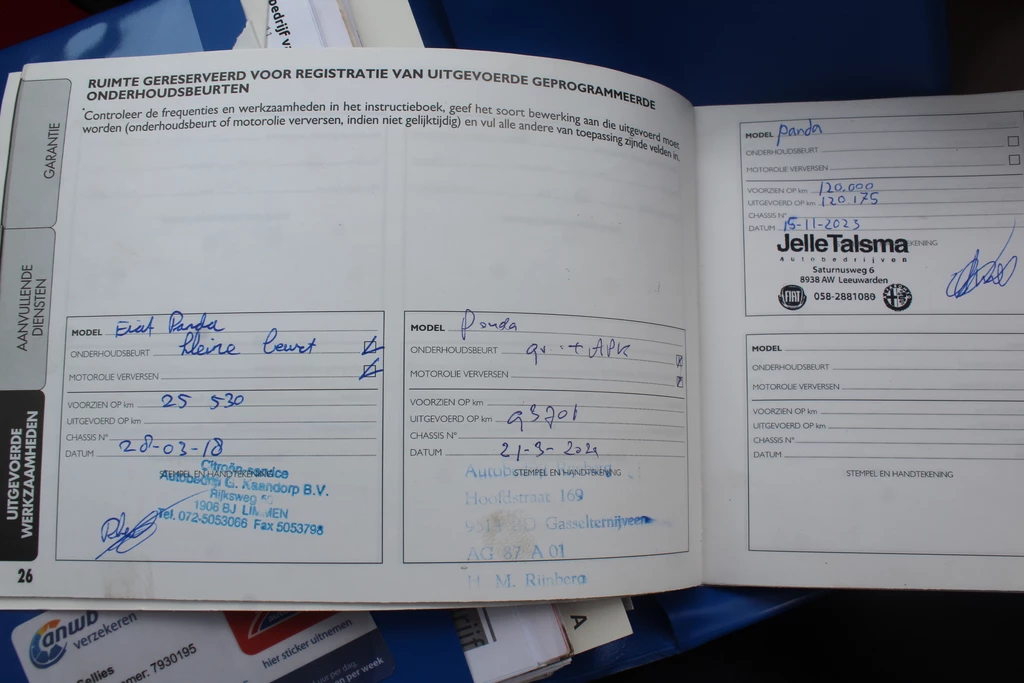 bedrijf v
RUIMTE GERESERVEERD VOOR REGISTRATIE VAN UITGEVOERDE GEPROGRAMMEERDE
ONDERHOUDSBEURTEN
*Controleer de frequenties en werkzaamheden in het instructieboek, geef het soort bewerking aan die uitgevoerd moet
worden (onderhoudsbeurt of motorolie verversen, indien niet gelijktijdig) en vul alle andere van toepassing zijnde velden in.
GARANTIE
AANVULLENDE
DIENSTEN
UITGEVOERDE
WERKZAAMHEDEN
26
MODEL Fiat Panda
ONDERHOUDSBEURT kleine beurt
MOTOROLIE VERVERSEN
VOORZIEN OP km 25 530
UITGEVOERD OP km
CHASSIS N°
DATUM 28-03-18
STEMPEL EN HANDTEKENING
Citroën-service
Autobedrijf G. Kaandorp B.V.
Rijksweg
1906 BJ LIMMEN
Tel. 072-5053066 Fax 5053798
MODEL Panda
ONDERHOUDSBEURT gr. + APK
MOTOROLIE VERVERSEN
VOORZIEN OP km
UITGEVOERD OP km 93701
CHASSIS N°
DATUM 21-3-202
STEMPEL EN HANDTEKENING
Hoofdstraat 169
Gasselternijveen
AG 87 A 01
H. M. Rijnberg
MODEL Panda
ONDERHOUDSBEURT
MOTOROLIE VERVERSEN
VOORZIEN OP km 120.000
UITGEVOERD OP km 120.175
CHASSIS N°
DATUM 15-11-2023
JelleTalsma
autobedrijven
Saturnusweg 6
8938 AW Leeuwarden
FIAT 058-2881080
MODEL
ONDERHOUDSBEURT
MOTOROLIE VERVERSEN
VOORZIEN OP km
UITGEVOERD OP km
CHASSIS N°
DATUM
STEMPEL EN HANDTEKENING
anwb
verzekeren
ellies
mer: 7930195
hier sticker uitnemen
per dag,
en per week
A